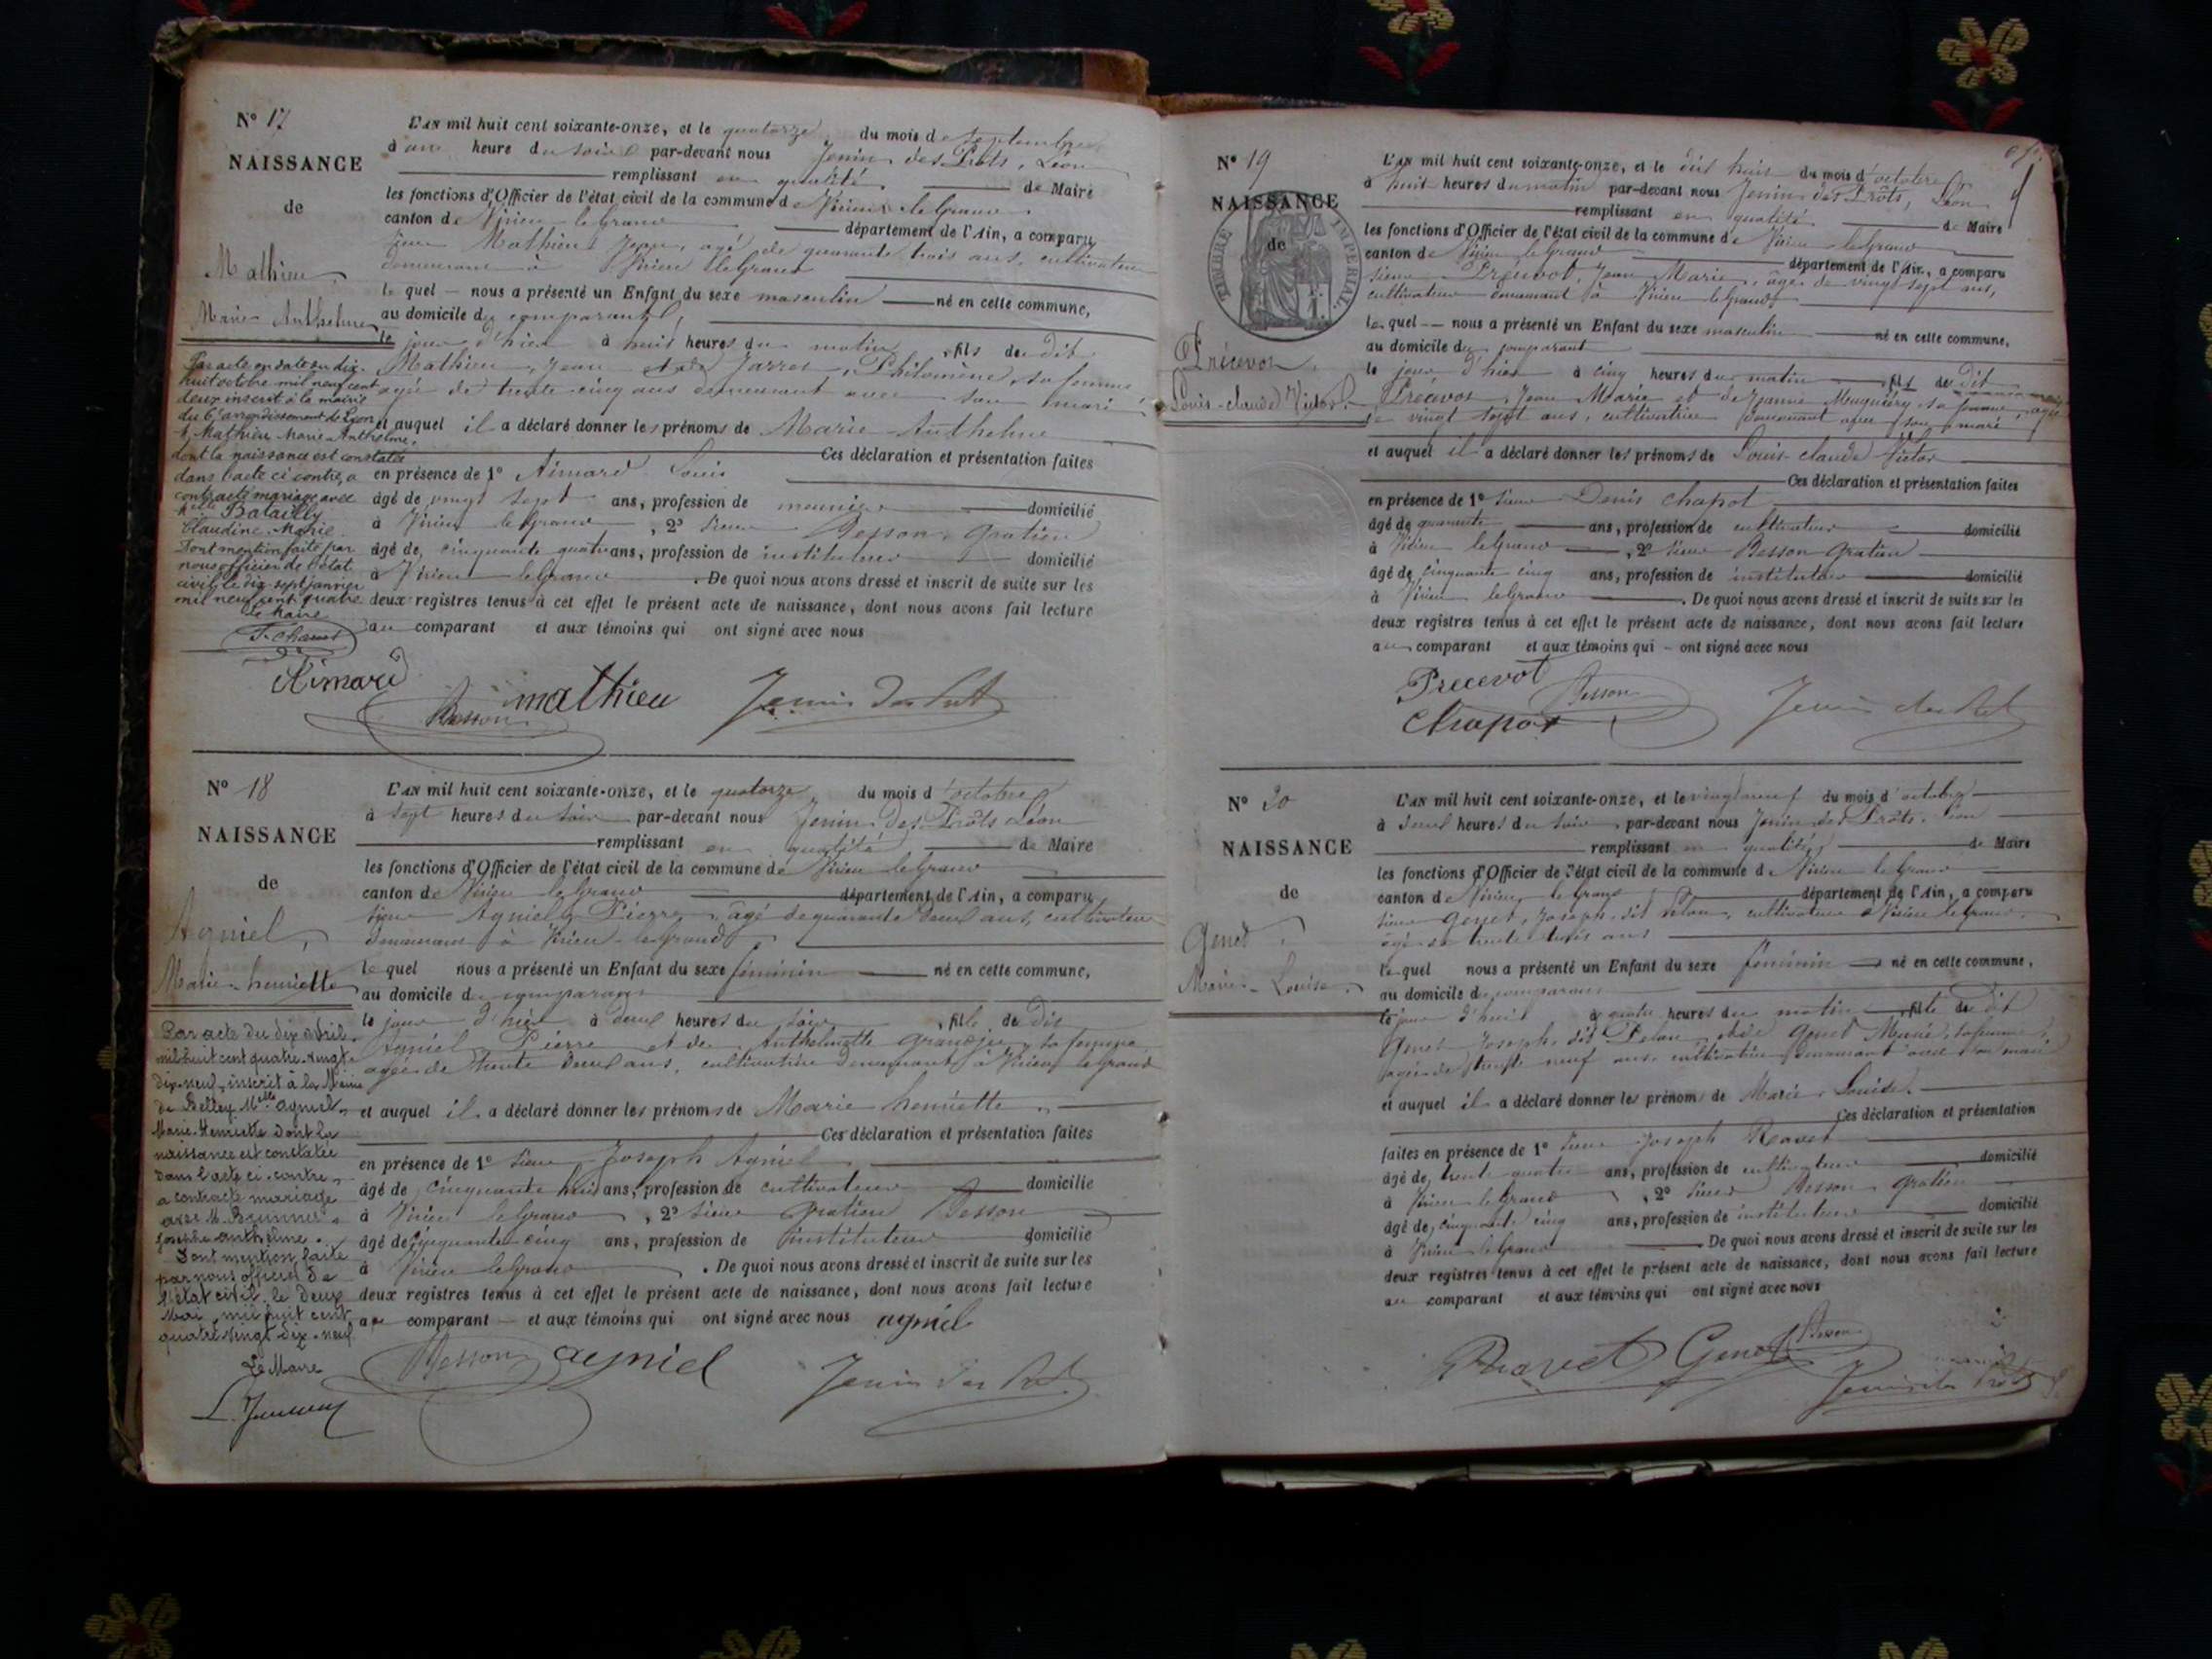 N° 17
NAISSANCE
de
Mathieu
Marie Anthelme
Par acte en date du dix-
huit octobre mil neuf cent
deux inscrit à la mairie
du 6e arrondissement de Lyon
Mathieu Marie-Anthelme,
dont la naissance est constatée
dans l'acte ci contre, a
contracté mariage avec
Melle Batailly
Claudine-Marie
Dont mention faite par
nous officier de l'état
civil le dix-sept janvier
mil neuf cent quatre
Le Maire
L'AN mil huit cent soixante-onze, et le quatorze du mois de septembre
à une heure du soir par-devant nous Jenin des Prôts, Léon
remplissant en qualité de Maire
les fonctions d'Officier de l'état civil de la commune de Virieu-le-Grand
canton de Virieu le Grand département de l'Ain, a comparu
sieur Mathieu Jean, agé de quarante trois ans, cultivateur
demeurant à Virieu le Grand
lequel nous a présenté un Enfant du sexe masculin né en cette commune,
au domicile du comparant,
le jour d'hier à huit heures du matin, fils du dit
Mathieu, Jean et de Jarret, Philomène, sa femme
agée de trente cinq ans demeurant avec son mari
et auquel il a déclaré donner les prénoms de Marie Anthelme
Ces déclaration et présentation faites
en présence de 1° Aimard Louis
âgé de vingt sept ans, profession de meunier domicilié
à Virieu le Grand, 2° sieur Besson, Gratien
âgé de cinquante quatre ans, profession de instituteur domicilié
à Virieu le Grand. De quoi nous avons dressé et inscrit de suite sur les
deux registres tenus à cet effet le présent acte de naissance, dont nous avons fait lecture
au comparant et aux témoins qui ont signé avec nous
Aimard
Besson mathieu Jenin des Prôts
N° 18
NAISSANCE
de
Agniel,
Marie-henriette
Par acte du dix avril
mil huit cent quatre-vingt-
dix-neuf, inscrit à la Mairie
de Belley Melle Agniel
Marie-Henriette dont la
naissance est constatée
dans l'acte ci-contre
a contracté mariage
avec M. Brunner
Joseph-Anthelme.
Dont mention faite
par nous officier de
l'état civil, le deux
Mai, mil huit cent
quatre-vingt-dix-neuf
Le Maire
L'AN mil huit cent soixante-onze, et le quatorze du mois d'octobre
à sept heures du soir par-devant nous Jenin des Prôts Léon
remplissant en qualité de Maire
les fonctions d'Officier de l'état civil de la commune de Virieu le Grand
canton de Virieu le Grand département de l'Ain, a comparu
sieur Agniel, Pierre, âgé de quarante deux ans, cultivateur
demeurant à Virieu-le-Grand
lequel nous a présenté un Enfant du sexe féminin né en cette commune,
au domicile du comparant
le jour d'hier à deux heures du soir, fille du dit
Agniel, Pierre et de Anthelmette Grangeu, sa femme
agée de trente deux ans, cultivatrice demeurant à Virieu le Grand
et auquel il a déclaré donner les prénoms de Marie henriette
Ces déclaration et présentation faites
en présence de 1° sieur Joseph Agniel
âgé de cinquante huit ans, profession de cultivateur domicilié
à Virieu le Grand, 2° sieur Gratien Besson
âgé de cinquante cinq ans, profession de instituteur domicilié
à Virieu le Grand. De quoi nous avons dressé et inscrit de suite sur les
deux registres tenus à cet effet le présent acte de naissance, dont nous avons fait lecture
au comparant et aux témoins qui ont signé avec nous agniel
Besson agniel Jenin des Prôts
N° 19
NAISSANCE
de
TIMBRE IMPÉRIAL
Précevot
Louis-claude Victor
L'AN mil huit cent soixante-onze, et le dix huit du mois d'octobre
à huit heures du matin par-devant nous Jenin des Prôts, Léon
remplissant en qualité de Maire
les fonctions d'Officier de l'état civil de la commune de Virieu-le-Grand
canton de Virieu le Grand département de l'Ain, a comparu
sieur Précevot, Jean Marie, âgé de vingt sept ans,
cultivateur demeurant à Virieu le Grand
lequel nous a présenté un Enfant du sexe masculin né en cette commune,
au domicile du comparant
le jour d'hier à cinq heures du matin fils du dit
Précevot, Jean Marie et de Jeanne sa femme, agée
de vingt sept ans, cultivatrice demeurant avec son mari
et auquel il a déclaré donner les prénoms de Louis-claude Victor
Ces déclaration et présentation faites
en présence de 1° sieur Denis chapot
âgé de quarante ans, profession de cultivateur domicilié
à Virieu le Grand, 2° sieur Besson Gratien
âgé de cinquante cinq ans, profession de instituteur domicilié
à Virieu le Grand. De quoi nous avons dressé et inscrit de suite sur les
deux registres tenus à cet effet le présent acte de naissance, dont nous avons fait lecture
au comparant et aux témoins qui ont signé avec nous
Precevot Besson
Chapot Jenin des Prôts
N° 20
NAISSANCE
de
Genet
Marie-Louise
L'AN mil huit cent soixante-onze, et le vingt neuf du mois d'octobre
à deux heures du soir, par-devant nous Jenin des Prôts, Léon
remplissant en qualité de Maire
les fonctions d'Officier de l'état civil de la commune de Virieu le Grand
canton de Virieu le Grand département de l'Ain, a comparu
sieur Genet, Joseph, dit cultivateur à Virieu le Grand,
agé de trente trois ans
lequel nous a présenté un Enfant du sexe féminin né en cette commune,
au domicile du comparant
le jour d'hui à quatre heures du matin fille du dit
Genet Joseph, dit et de Genet Marie, sa femme,
agée de trente neuf ans, cultivatrice demeurant avec son mari
et auquel il a déclaré donner les prénoms de Marie Louise.
Ces déclaration et présentation
faites en présence de 1° sieur Joseph Ravet
âgé de trente quatre ans, profession de cultivateur domicilié
à Virieu le Grand, 2° sieur Besson Gratien
âgé de cinquante cinq ans, profession de instituteur domicilié
à Virieu le Grand. De quoi nous avons dressé et inscrit de suite sur les
deux registres tenus à cet effet le présent acte de naissance, dont nous avons fait lecture
au comparant et aux témoins qui ont signé avec nous
Ravet Genet Besson
Jenin des Prôts